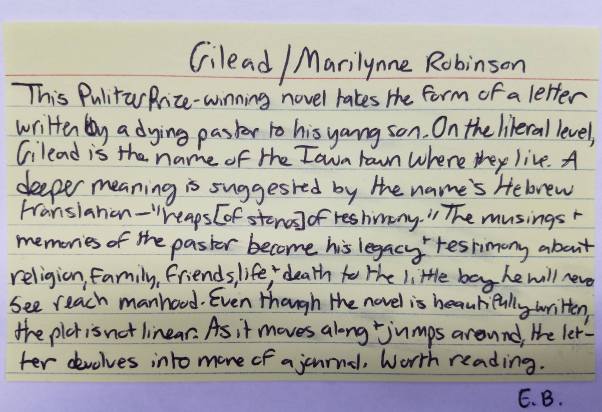 Gilead/Marilynne Robinson
This Pulitzer Prize-winning novel takes the form of a letter
written by a dying pastor to his young son. On the literal level,
Gilead is the name of the Iowa town where they live. A
deeper meaning is suggested by the name's Hebrew
translation-"heaps[of stones]of testimony." The musings +
memories of the pastor become his legacy + testimony about
religion, family, friends, life, + death to the little boy he will never
see reach manhood. Even though the novel is beautifully written,
the plot is not linear. As it moves along + jumps around, the let-
ter devolves into more of a journal. Worth reading.
E.B.